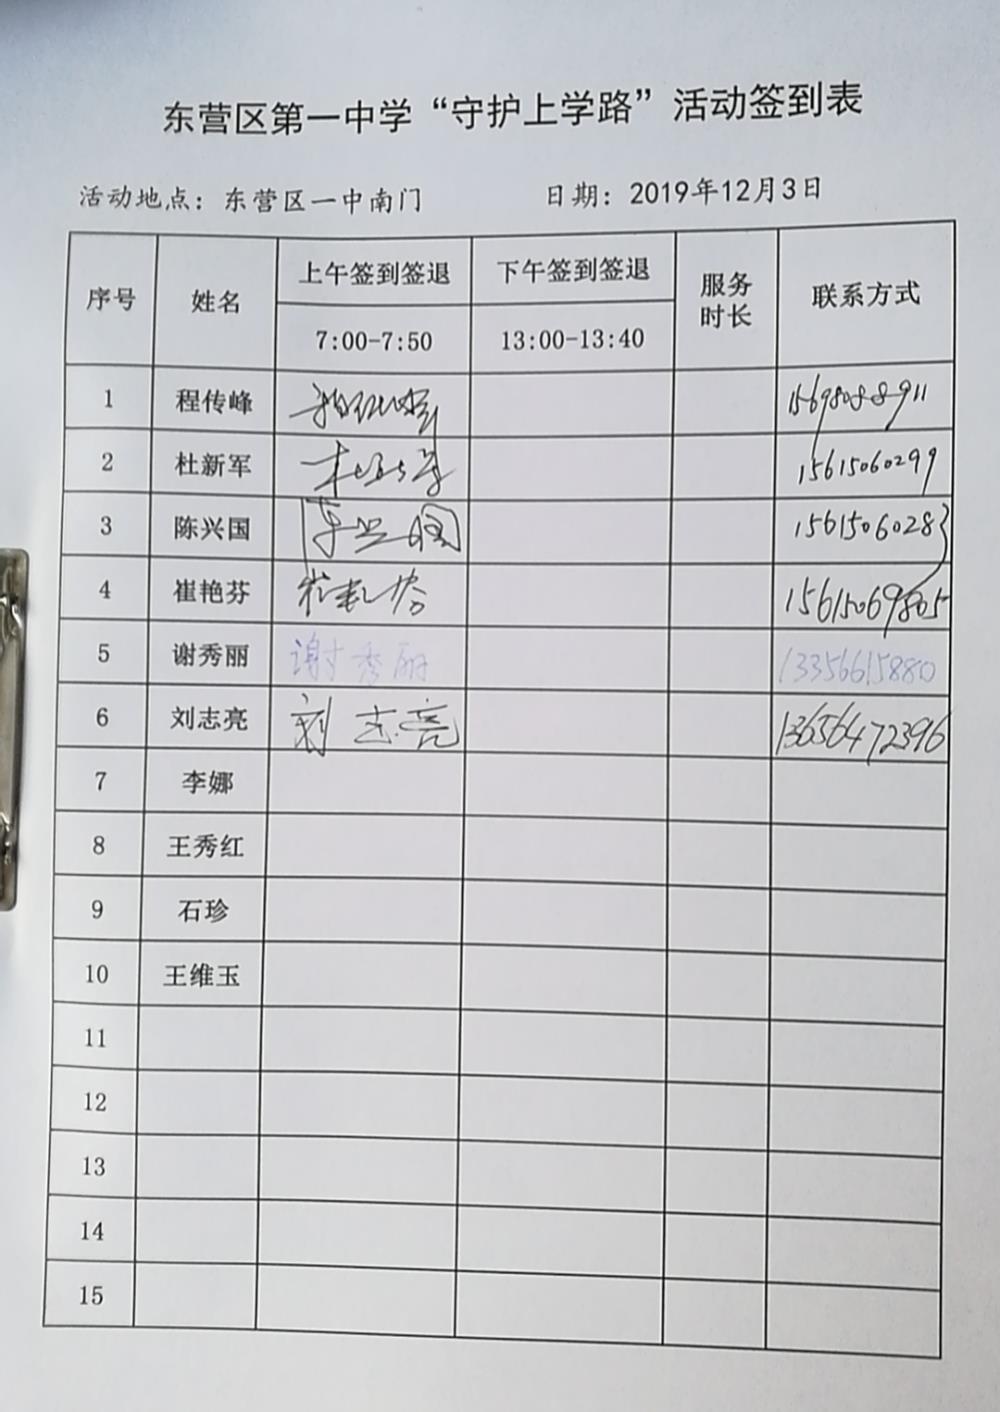 东营区第一中学“守护上学路”活动签到表
活动地点：东营区一中南门 日期：2019年12月3日
序号 姓名 上午签到签退 下午签到签退 服务时长 联系方式
7:00-7:50 13:00-13:40
1 程传峰 程传峰 15698088911
2 杜新军 杜新军 15615060299
3 陈兴国 陈兴国 15615060283
4 崔艳芬 崔艳芬 15615069805
5 谢秀丽 谢秀丽 13356615880
6 刘志亮 刘志亮 13656472396
7 李娜
8 王秀红
9 石珍
10 王维玉
11
12
13
14
15